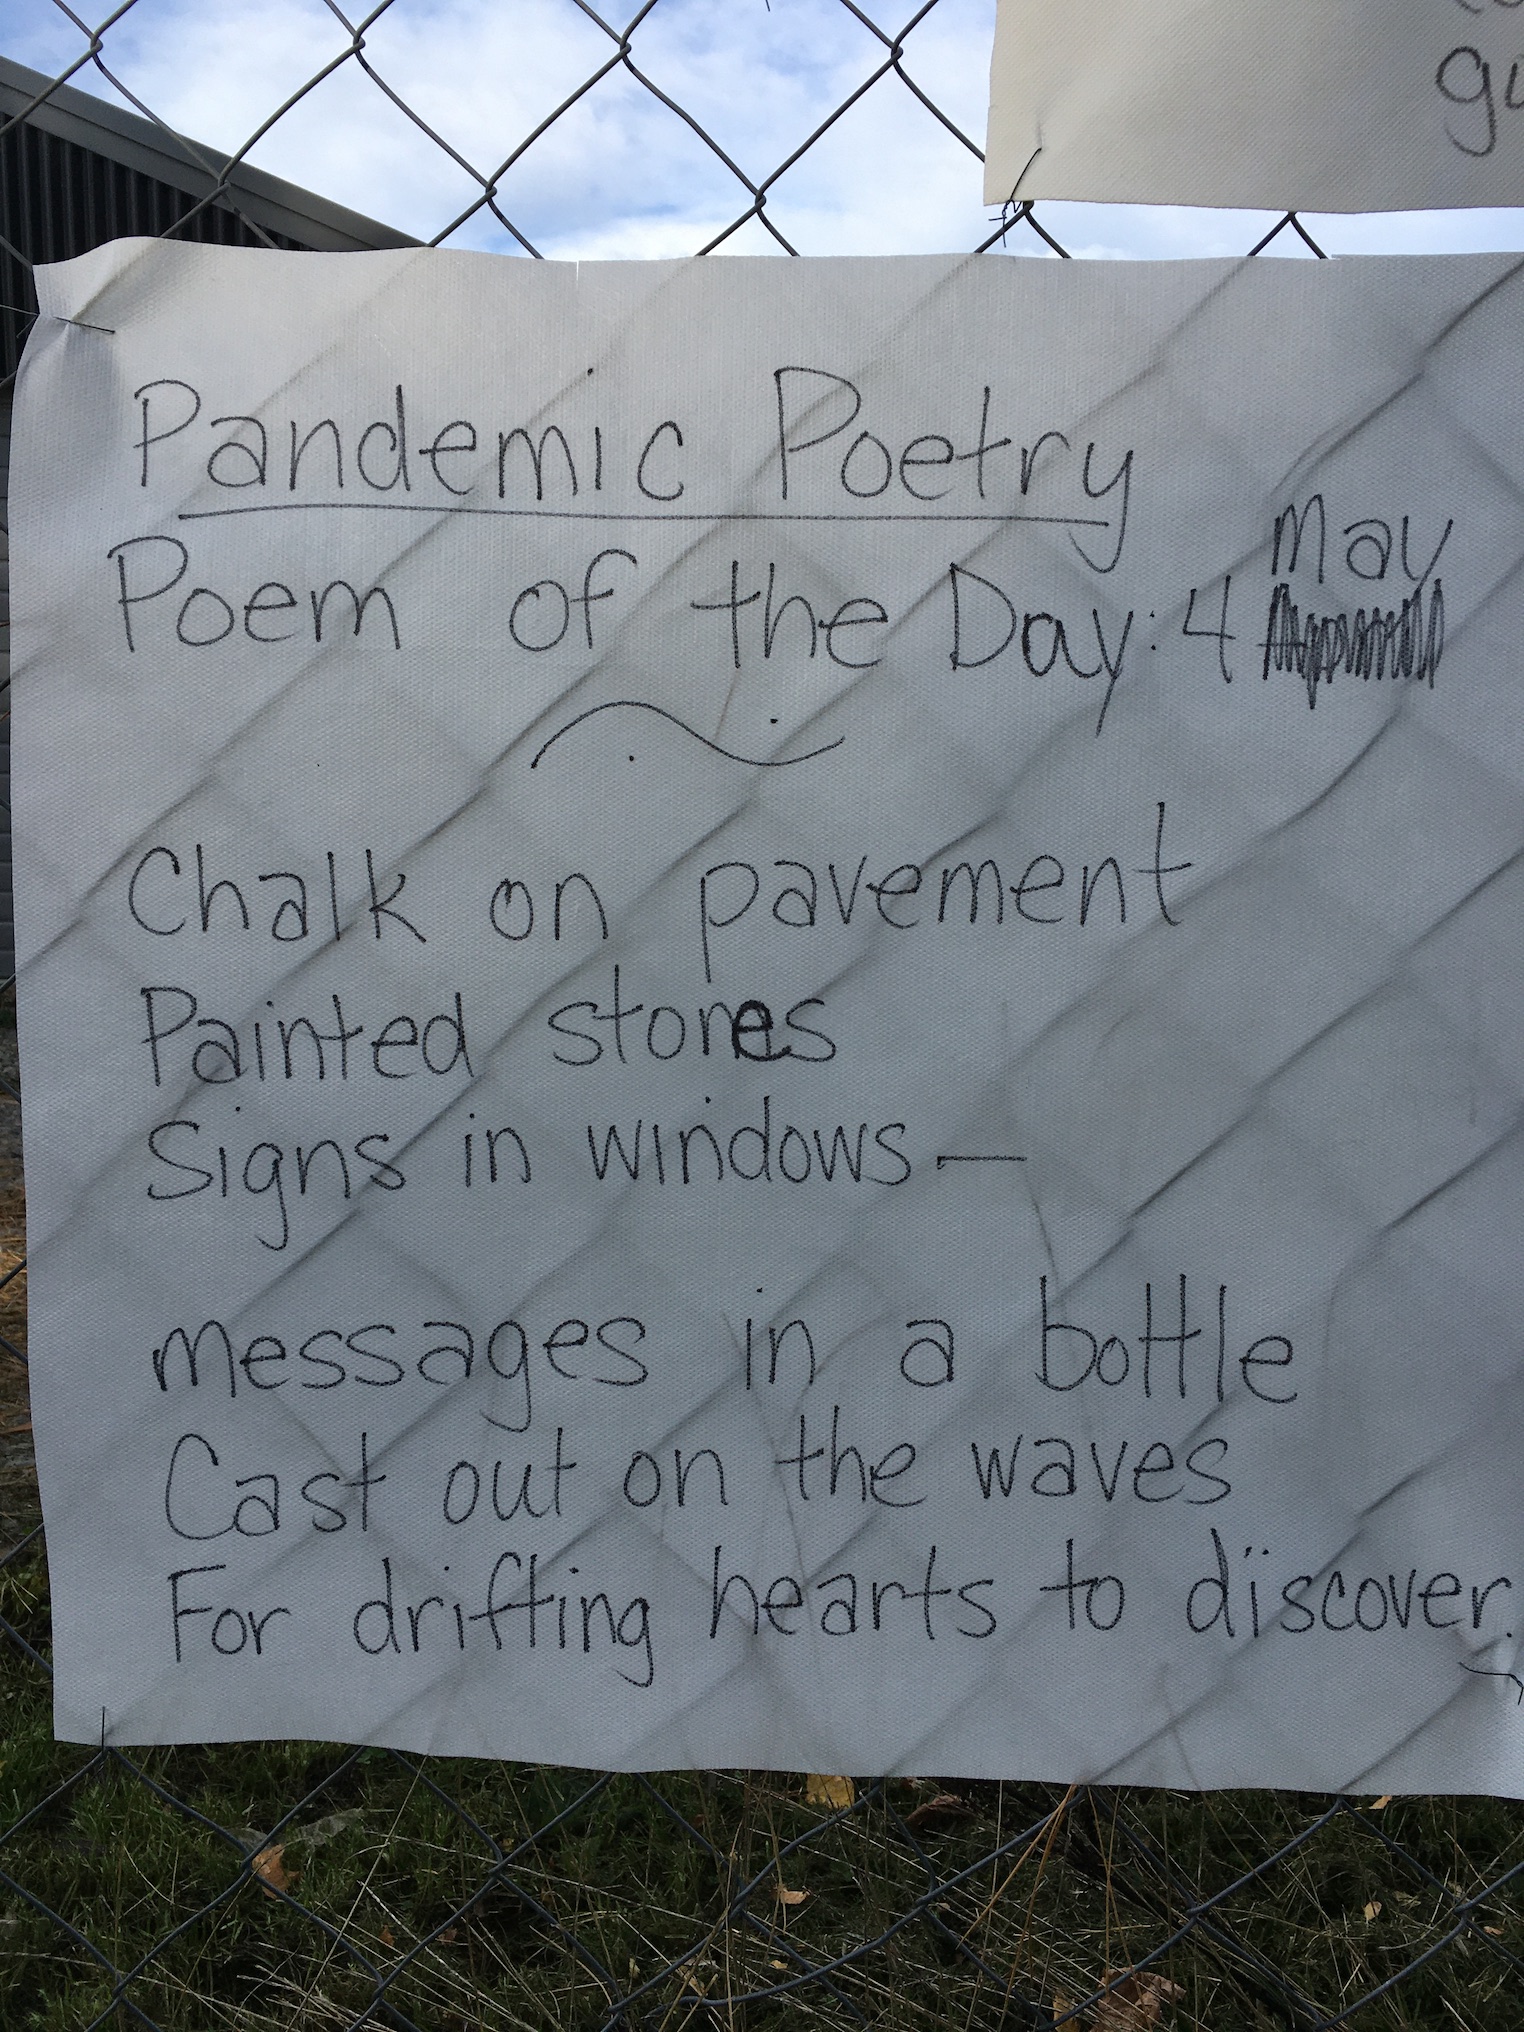 gu
Pandemic Poetry
May
Poem of the Day: 4
Chalk on pavement
Painted stones
Signs in windows—
messages in a bottle
Cast out on the waves
For drifting hearts to discover.